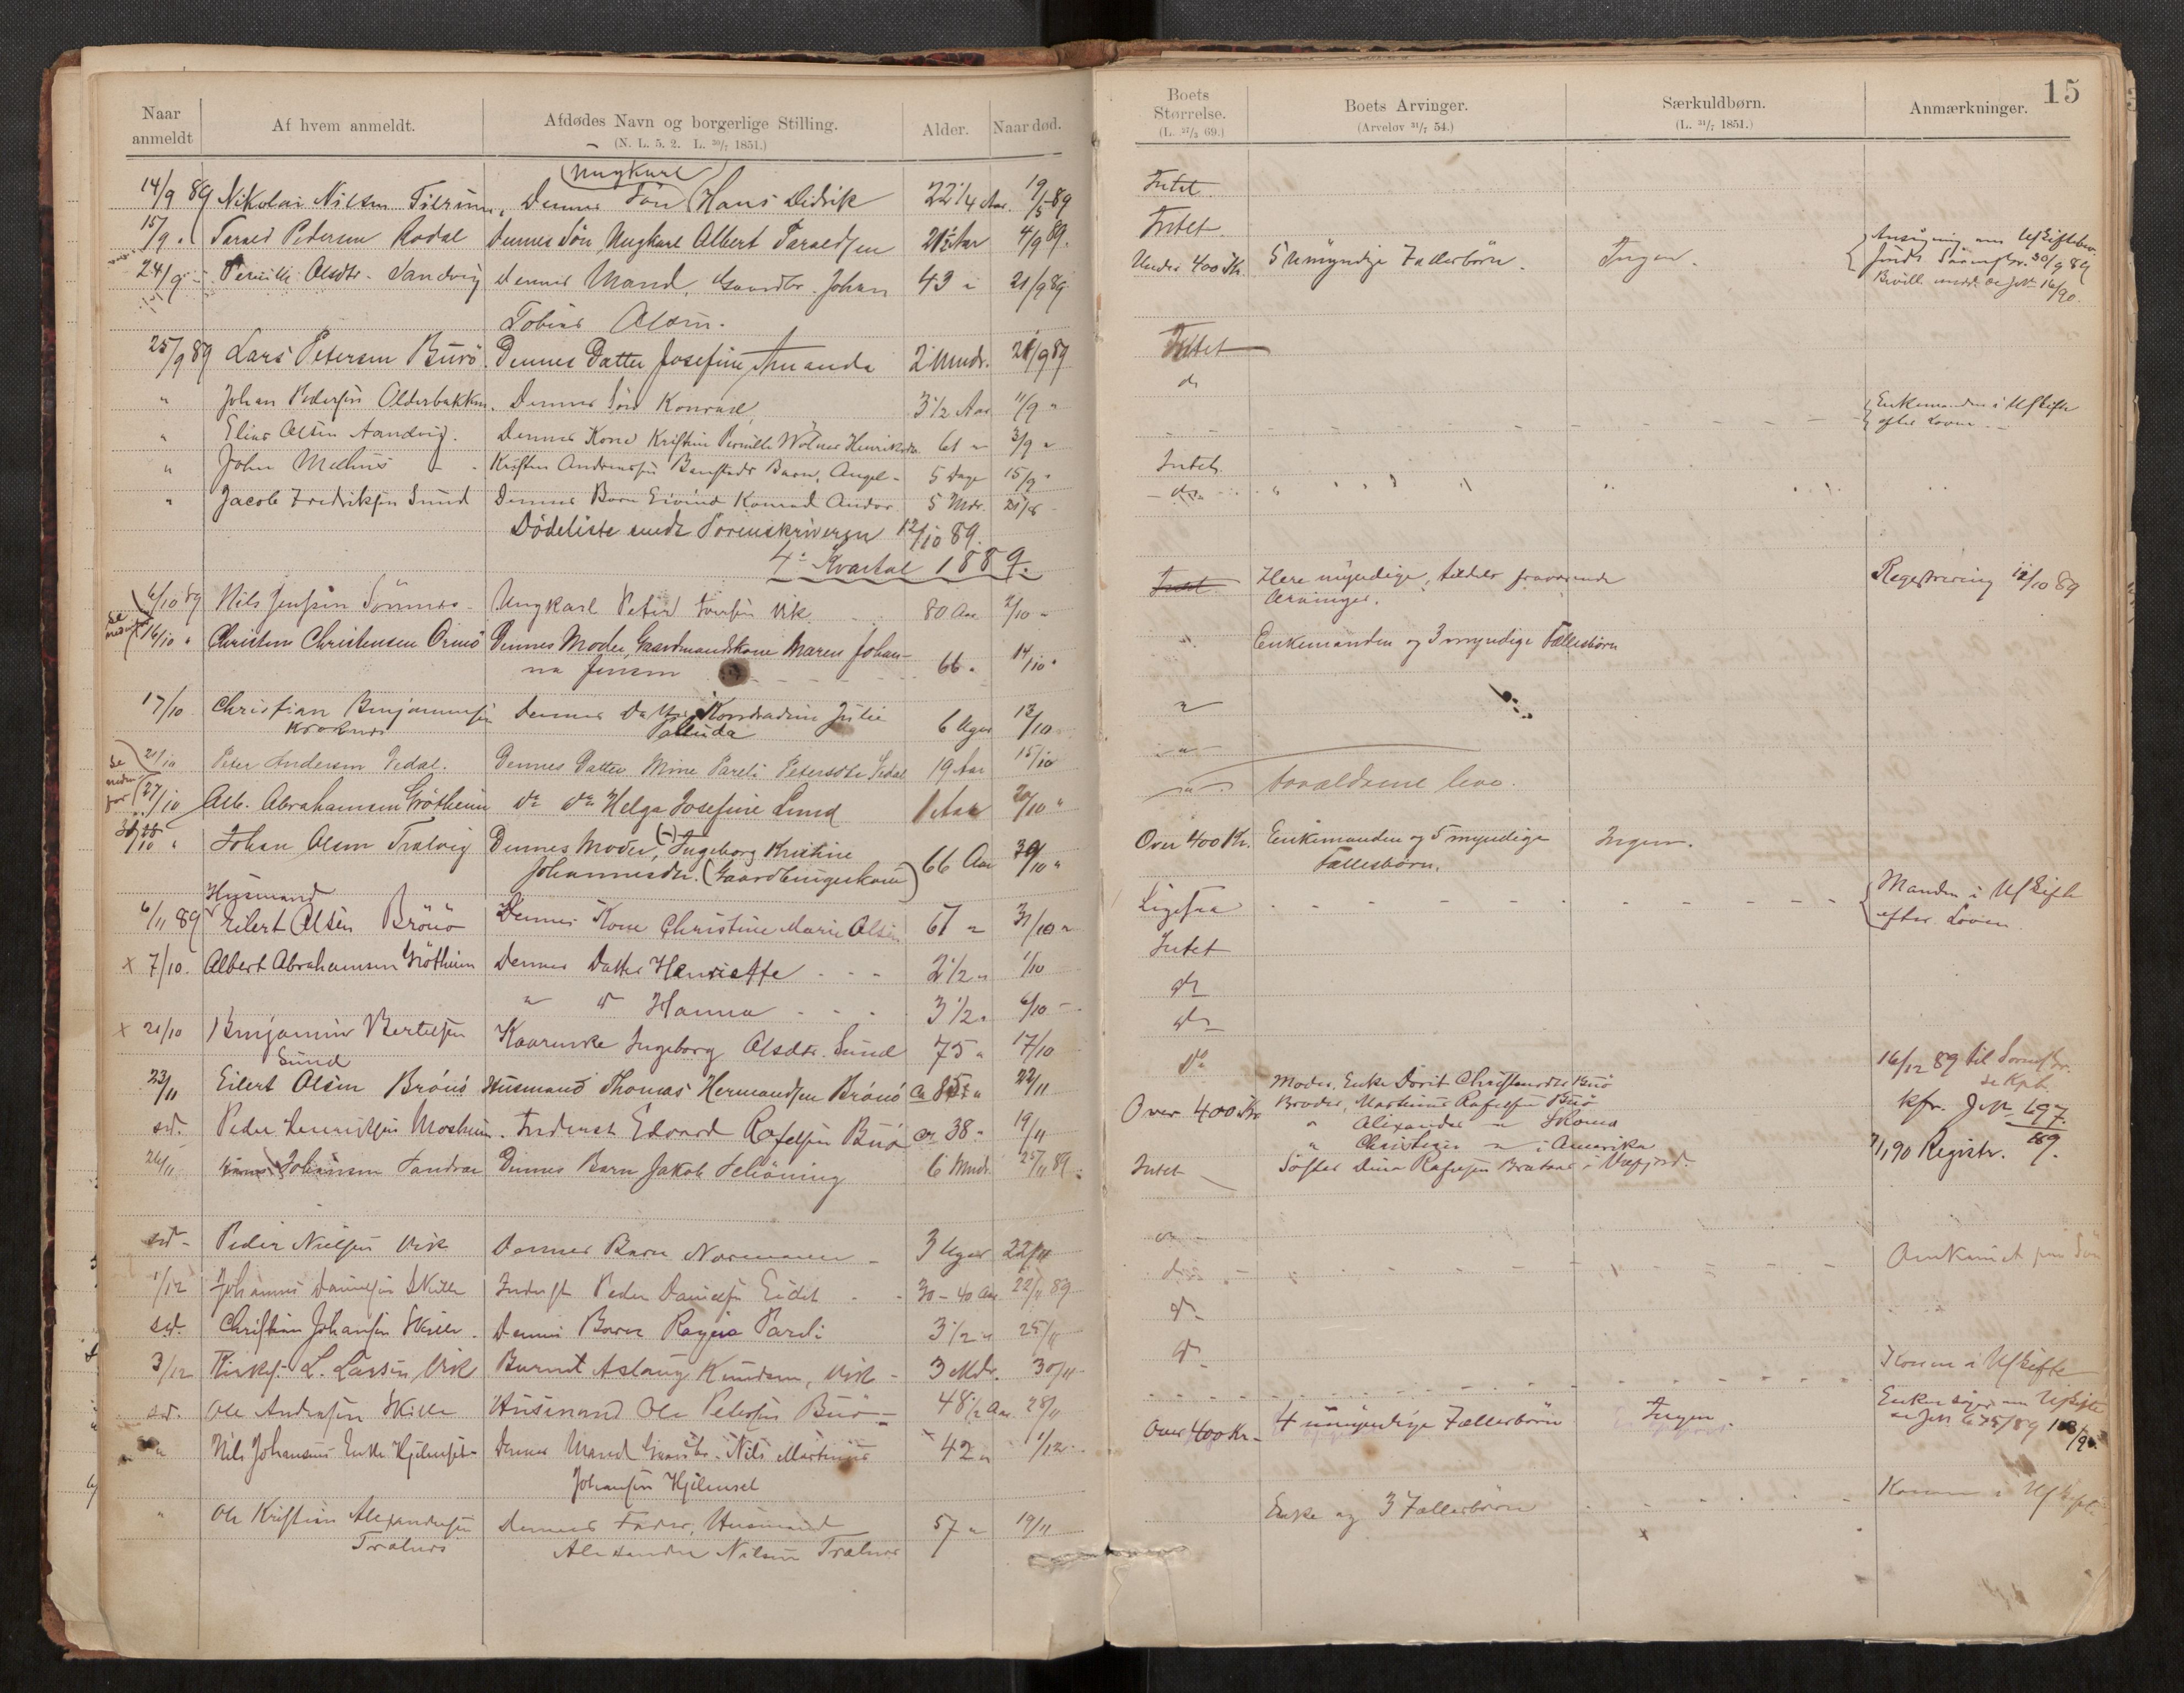 Naar anmeldt
Af hvem anmeldt.
Afdødes Navn og borgerlige Stilling.
(N. L. 5. 2. L. 30/7 1851.)
Alder.
Naar død.
Ungkarl
14/9 89 Nikolai Nilsen Tilrum, Dennes Søn Hans Didrik 22 1/4 Aar. 19/5 89
15/9 " Tarald Petersen Rodal Dennes Søn, Ungkarl Albert Taraldsen 21 1/2 Aar 4/9 89.
24/9 - Pernille Olsdtr. Sandvig Dennes Mand, Gaardbr. Johan 43 " 21/9 89
Tobias Olsen.
25/9 89 Lars Petersen Burö. Dennes Datter Josefine Amanda 2 Mndr. 21/9 89
" Johan Pedersen Olderbakken. Dennes Søn Konrad 3 1/2 Aar 11/9 "
" Elias Olsen Sandvig. Dennes Kone Kristine Pernille Henriksdr. 61 " 3/9 "
" John Melhus - Kristen Andreassen Barn, Angel - 5 Dage 15/9 "
" Jacob Fredriksen Sund Dennes Barn Eivind Konrad Andor 5 Mdr. 25/8 -
Dödeliste sendt Sorenskriveren 12/10 89.
4de Kvartal 1889.
6/10 89 Nils Jensen Sömnes - Ungkarl Peter Iversen Vik 80 Aar 2/10 "
Se nedenfor
16/10 " Christen Christensen Ormö Dennes Moder, Gaardmandskone Maren Johan-
na Jensen 66 " 14/10 "
17/10 Christian Benjaminsen Dennes Datter Kondradine Julie 6 Uger 13/10
Kroknes Palluda
Se nedenfor
21/10 Peter Andersen Sedal. Dennes Datter Mine Pareli Petersdtr Sedal 19 Aar 15/10
27/10 Alb. Abrahamsen Grötheim do do Helga Josefine Lund 1 Aar 20/10 "
31/10 " Johan Olsen Tralvig Dennes Moder, (-) Ingeborg Kristine
Johannesdtr. (Gaardbrugerkone) 66 Aar 30/10 "
Husmand
6/11 89 Eilert Olsen Brönö Dennes Kone Christine Marie Olsen 67 " 31/10 "
x 7/10. Albert Abrahamsen Gröthiem Dennes Datter Henriette - - - 2 1/2 " 1/10
" do Hanna - - - 3 1/2 " 6/10 -
x 21/10 Benjamin Bertelsen Kaarinke Ingeborg Olsdtr. Sund 75 " 17/10
Sund
23/11 Eilert Olsen Brönö Husmand Thomas Hermandsen Brönö ca 85 " 22/11
s.d. Peder Henriksen Mosheim. Inderst Edvard Rafelsen Buö ca 38 " 19/11
26/11 Johansen Tandrae Dennes Barn Jakob Schöning 6 Mndr. 25/11 89.
s.d. - Peder Nielsen Vik Dennes Barn Normann - 3 Uger 22/11
1/12 Johannes Danielsen Skille Inderst Peder Danielsen Eidet - - 30 - 40 Aar 22/11 89
s.d. Christian Johansen Skille. Dennes Barn Ragna Pareli 3 1/2 " 25/11
3/12 Kirkesj. L. Larsen, Vik Barnet Aslaug Knudsen, Vik - 3 Mdr. 30/11 -
s.d. Ole Andersen Skille Husmand Ole Petersen Buö - 48 1/2 Aar 28/11
" Nils Johansens Enke Hjelmset - Dennes Mand Gaardbr. Nils Martinus 42 " 1/12 -
Johansen Hjelmset
" Ole Kristian Alexandersen Dennes Fader, Husmand 57 " 19/11
Tralnes Alexander Nilsen Tralnes
15
Boets Størrelse.
(L. 27/3 69.)
Boets Arvinger.
(Arvelov 31/7 54.)
Særkuldbørn.
(L. 31/7 1851.)
Anmærkninger.
Intet.
Intet.
Under 400 Kr. 5 Umyndige Fællesbörn. Ingen. Ansøgning om Uskiftebev.
sendt 30/9 89
Bevill. medd. se J.No 16/90.
Intet
do
Enkemanden i Uskifte
efter Loven -
Intet
- do -
Intet Flere myndige, tildels fraværende Registrering 12/10 89
Arvinger.
" Enkemanden og 3 myndige Fællesbörn
"
- " -
- " - Forældrene leve.
Over 400 Kr. Enkemanden og 5 myndige Ingen.
Fællesbörn.
Ligesaa Manden i Uskifte
efter Loven.
Intet
do
do
do
16/12 89 til
Moder, Enke Dorit Christensdtr Buö
Over 400 Kr Broder, Martinus Rafelsen Buö kfr. J.No 697/89.
" Alexander "
" Christian " i Amerika 7/1 90 Registr.
Intet Søster Dina Rafelsen
do
do -
do
do
Konen i Uskifte
Over 400 Kr. - 4 umyndige Fællesbörn Ingen. Enken søger om Uskifte
se JNo 675/89
Enke og 3 Fællesbörn Konen i Uskifte